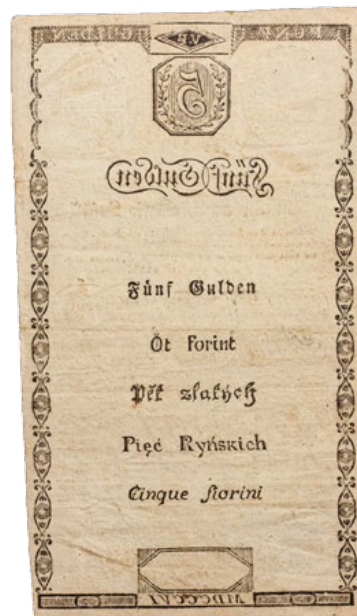 5
Fünf Gulden
Fünf Gulden
Öt forint
Pět zlatých
Pięć Ryńskich
Cinque fiorini
MDCCCVI